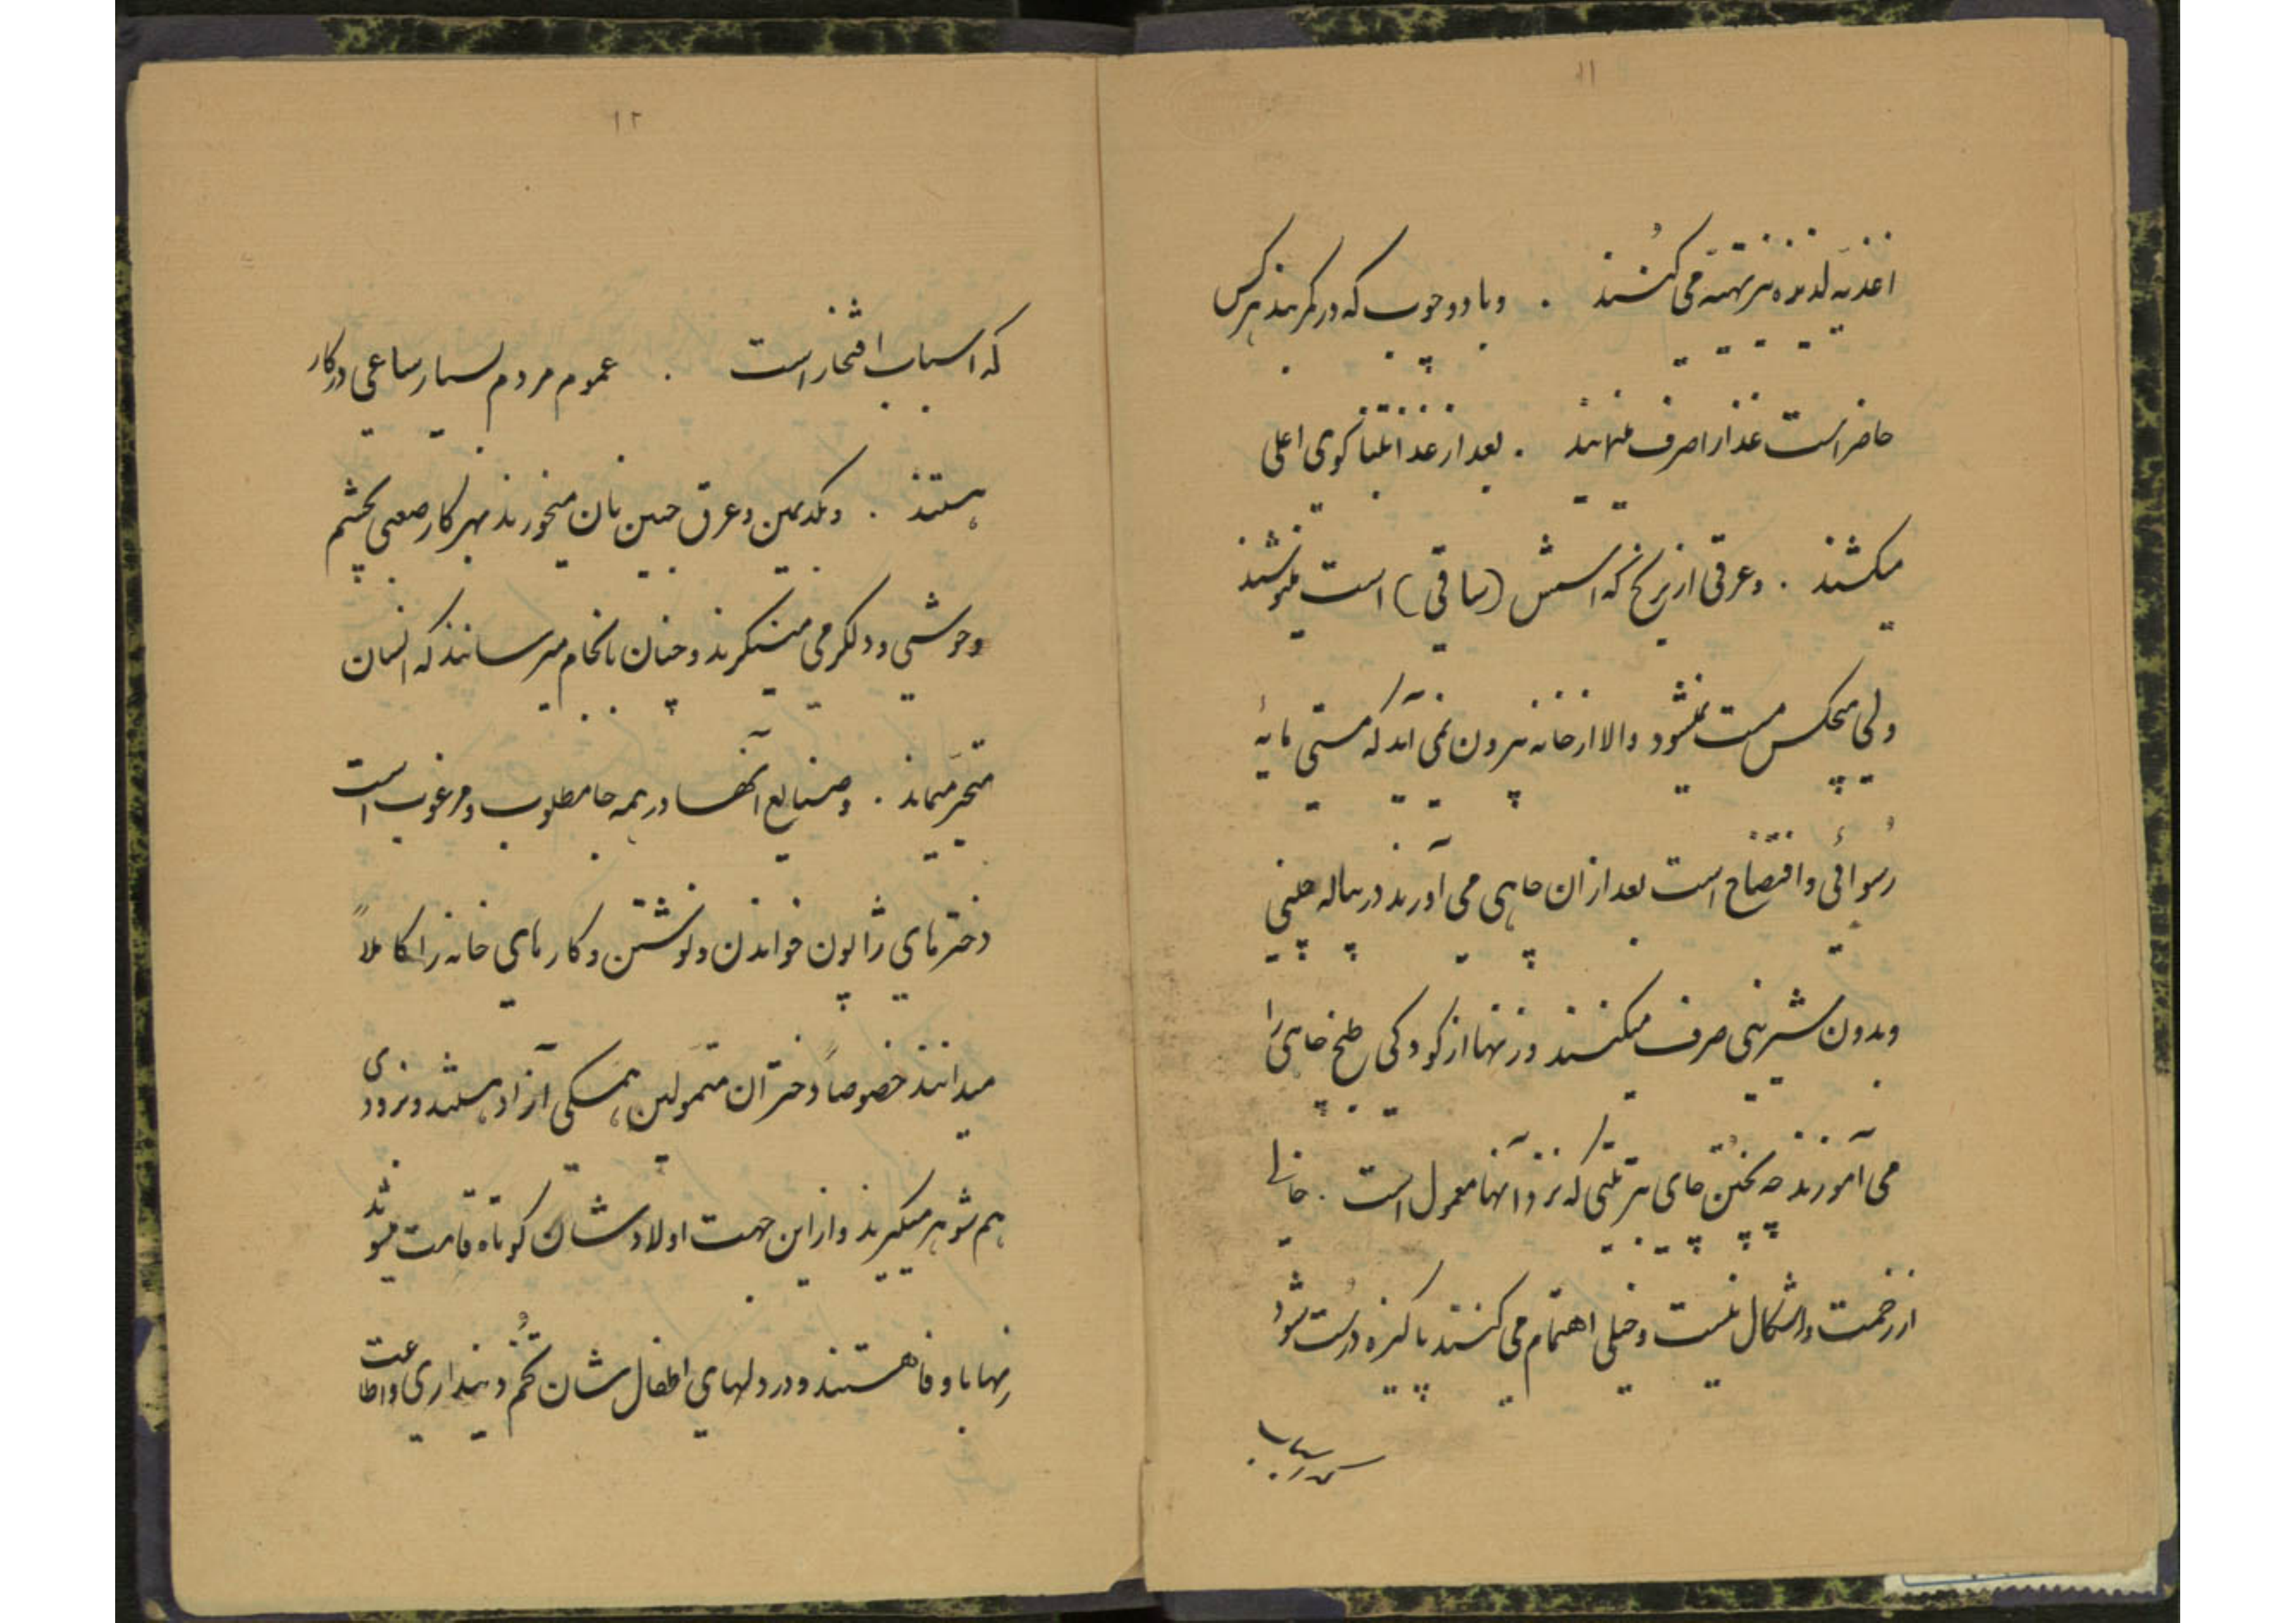 ۱۱
اغذیهٔ لذیذه نیز تهیّه می کُنند . و با دو چوب که در کمربند هر کس
حاضر است غذا را صرف مینمایند . بعد از غذا تنباکوی اعلی
میکشند . و عرقی از برنج که اسمش (ساقی) است مینوشند
ولی هیچکس مست نمیشود والا از خانه بیرون نمی آید که مستی مایهٔ
رُسوائی و افتضاح است بعد از ان چاهی می آورند در پیاله چینی
و بدون شیرینی صرف میکنند و زنها از کودکی طبخ چاهی را
می آموزند چه پختن چای بترتیبی که نزد آنها معمول است . خالی
از زحمت و اشکال نیست و خیلی اهتمام می کنند پاکیزه درُست شود
که اسباب
۱۲
که اسباب افتخار است . عموم مردم بسیار ساعی در کار
هستند . و بکد یمین و عرق جبین نان میخورند بهر کار صعبی بچشم
و خوشی و دلگرمی مینگرند و چنان بانجام میرسانند که انسان
متحیّر میماند . و صنایع آنها در همه جا مطلوب و مرغوب است
دخترهای ژاپون خواندن و نوشتن و کارهای خانه را کاملاً
میدانند خصوصاً دختران متموّلین همگی آزاد هستند و بزودی
هم شوهر میگیرند و از این جهت اولادشان کوتاه قامت میشوند
زنها با وفا هستند و در دلهای اطفال شان تُخم دینداری و اطاعت